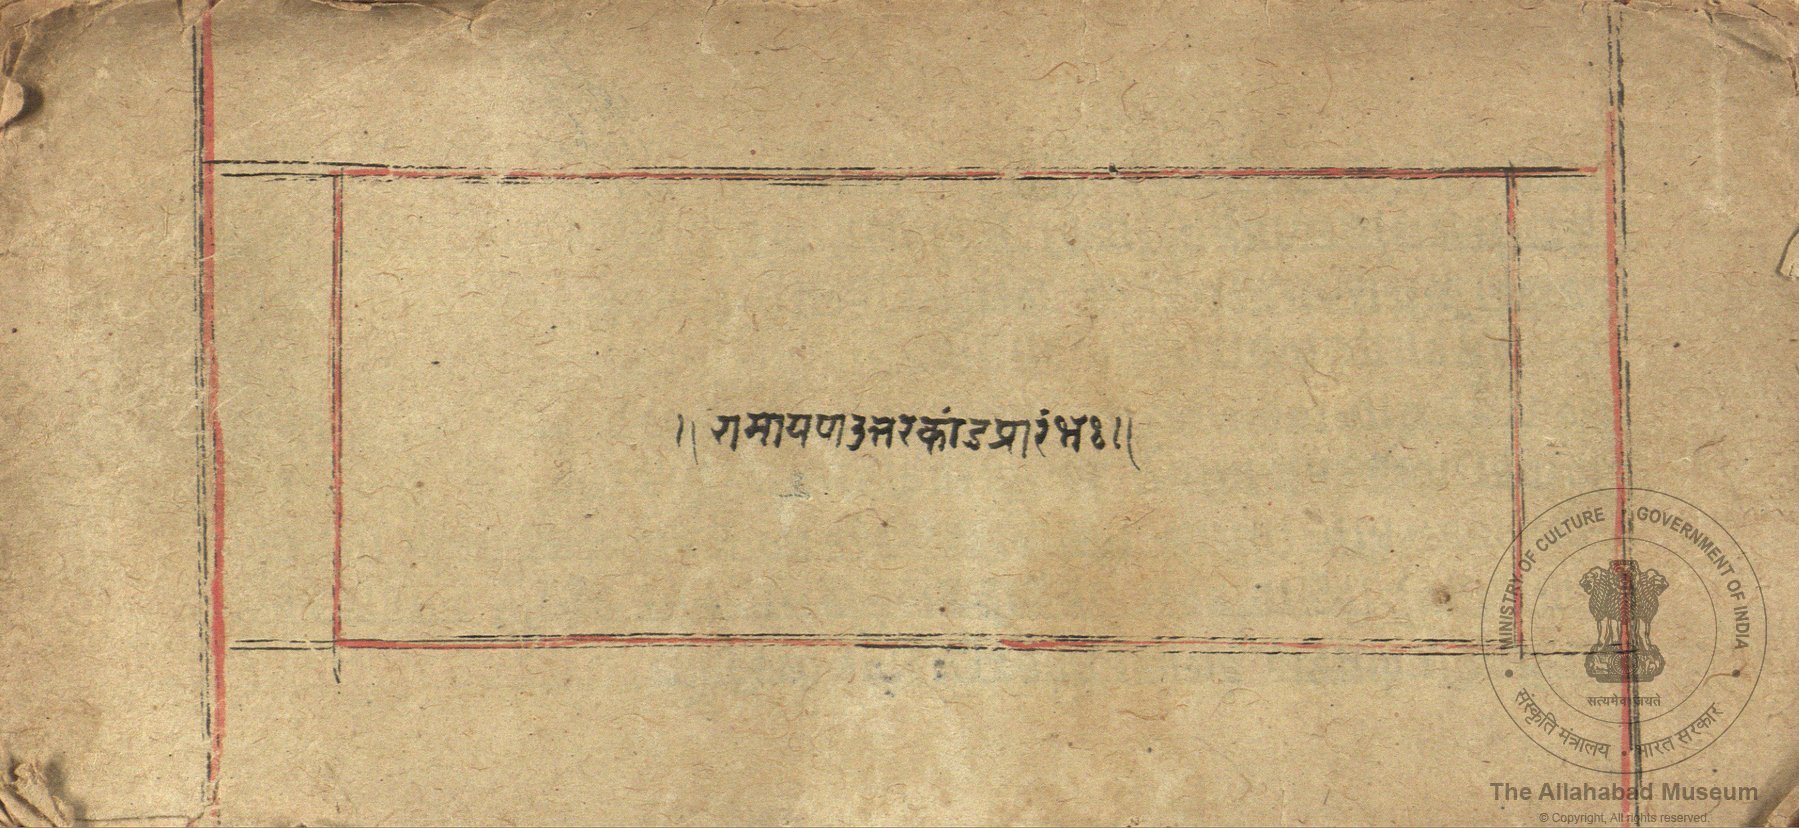 ॥ रामायणउत्तरकांडप्रारंभः॥
MINISTRY OF CULTURE GOVERNMENT OF INDIA
सत्यमेव जयते
संस्कृति मंत्रालय भारत सरकार
The Allahabad Museum
© Copyright, All rights reserved.